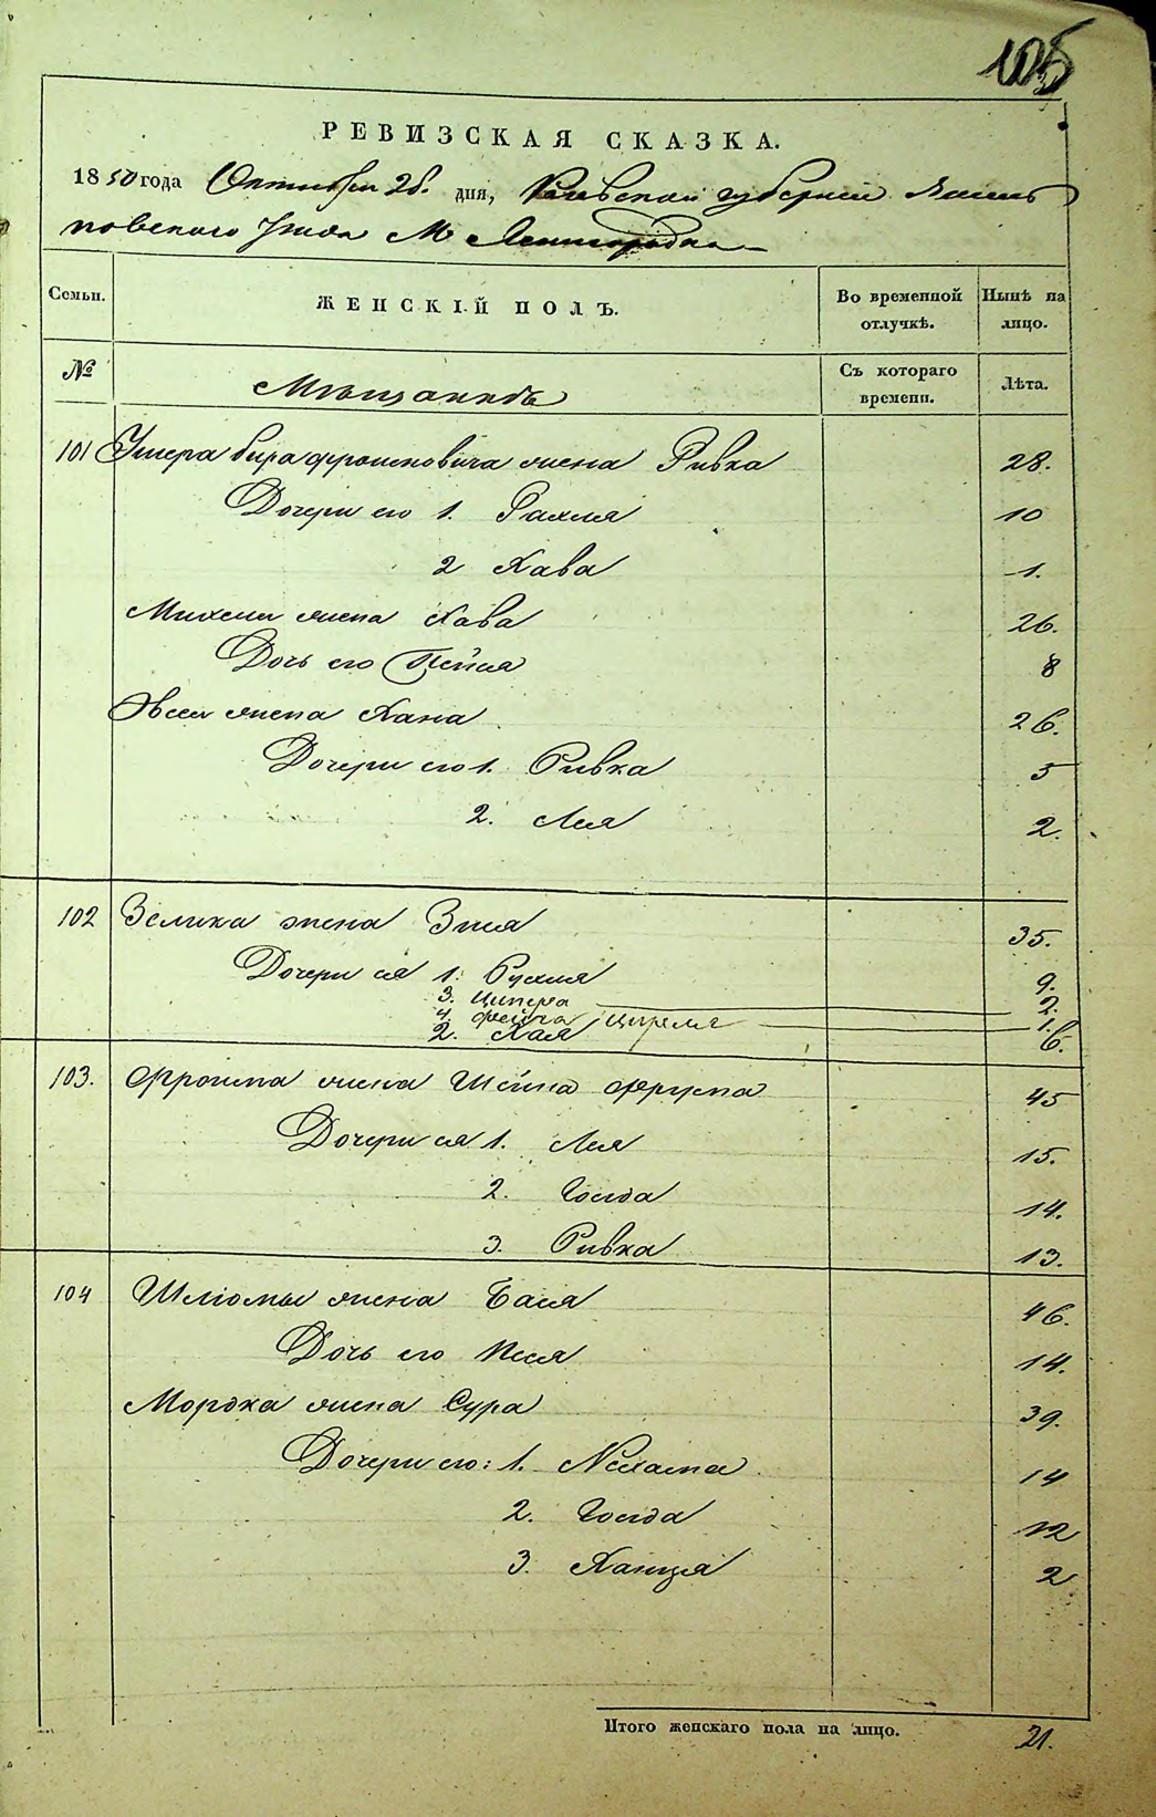 105
РЕВИЗСКАЯ СКАЗКА.
1850 года Октября 26. дня, Киевской губернии Василь
ковского уезда М
Семьи. ЖЕНСКІЙ ПОЛЪ. Во временной отлучкѣ. Нынѣ на лицо.
№ Мещанкъ Съ котораго времени. Лѣта.
101 Умера Фроимовича жена Ривка 28.
Дочери его 1. Рахля 10
2 Хава 1.
Михеля жена Хава 26.
Дочь его Бейля 8
жена Хана 26.
Дочери его 1. Ривка 5
2. Лея 2.
102 Зелика жена Зися 35.
Дочери ея 1. Рухля 9.
3. Ципера 2.
4. Фейга Цирля 1.
2. Хая 6.
103. Фроима жена Шейна Фрума 45
Дочери ея 1. Лея 15.
2. Голда 14.
3. Ривка 13.
104 Шлиомы жена Бася 46.
Дочь его Песя 14.
Мордка жена Сура 39.
Дочери его: 1. Нехама 14
2. Голда 12
3. Ханця 2
Итого женскаго пола на лицо. 21.